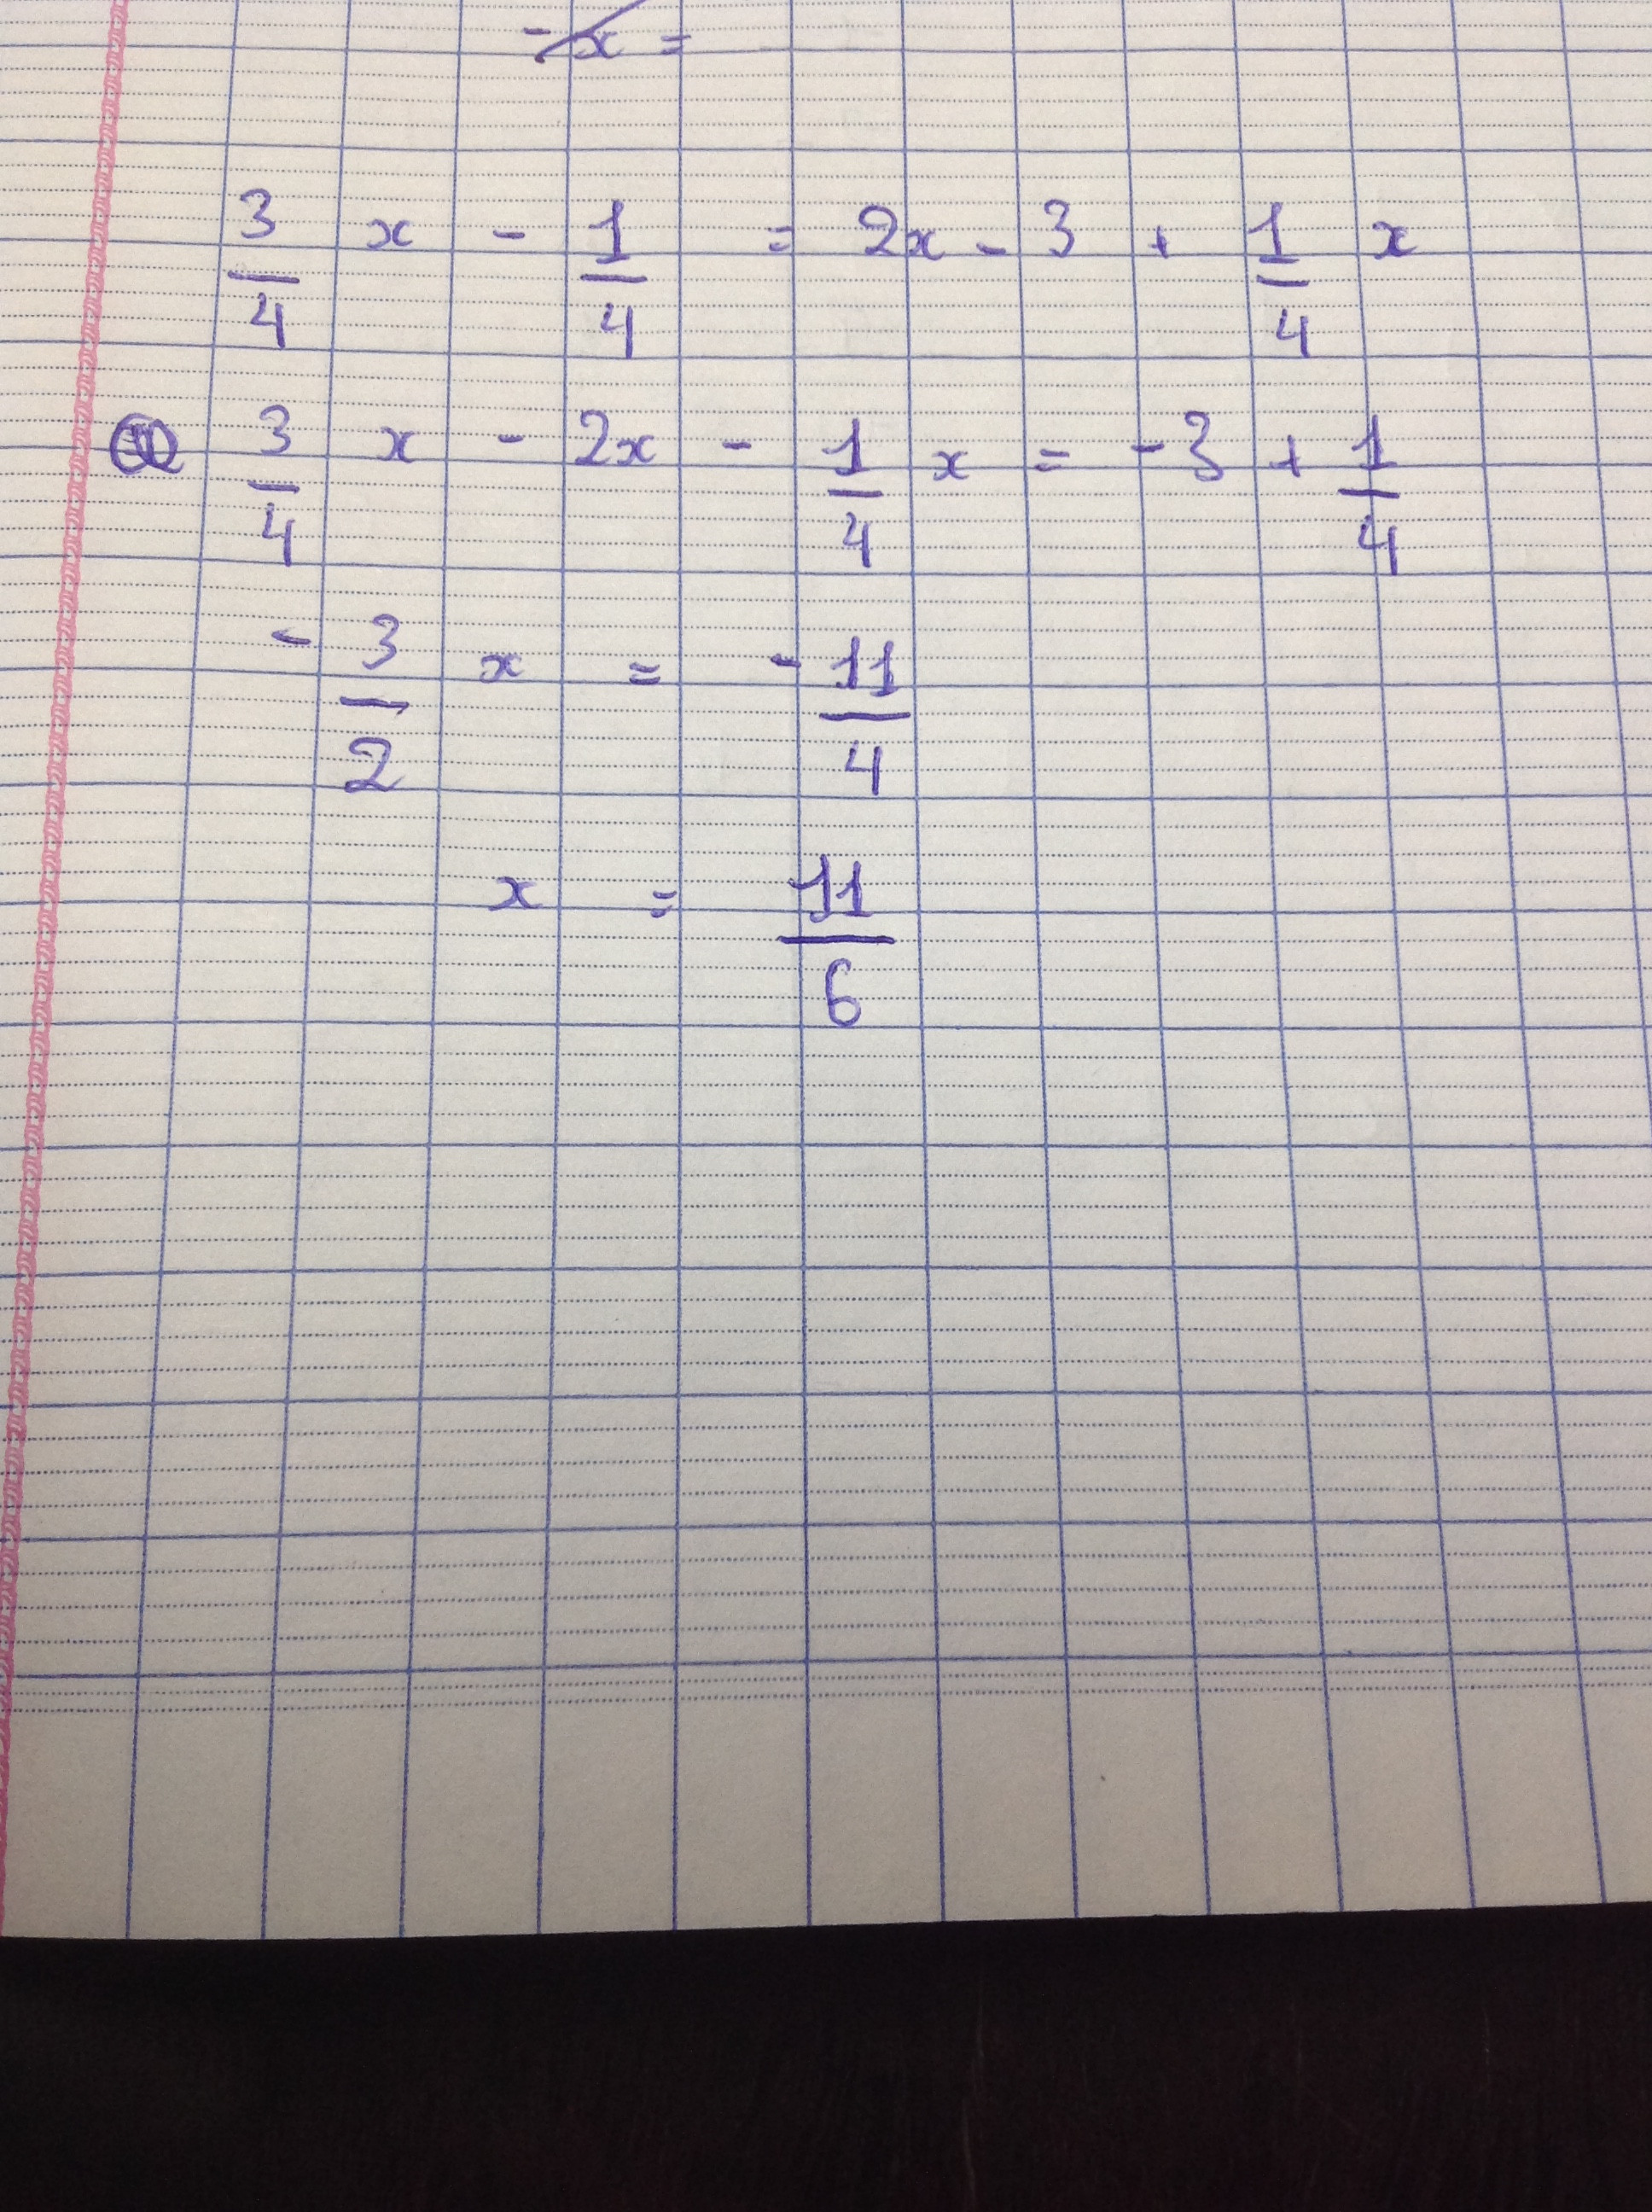 - x =
3/4 x - 1/4 = 2x - 3 + 1/4 x
3/4 x - 2x - 1/4 x = -3 + 1/4
- 3/2 x = - 11/4
x = 11/6